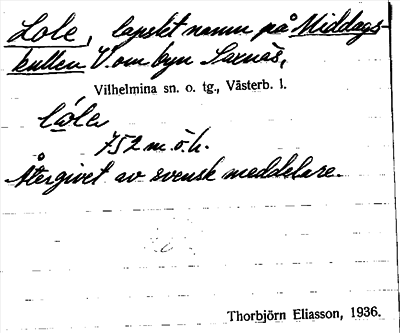 Lole, lapskt namn på Middags-
kullen V om byn Saxnäs,
Vilhelmina sn. o. tg., Västerb. l.
lóla
752 m. ö. h.
Återgivet av svensk meddelare.
Thorbjörn Eliasson, 1936.